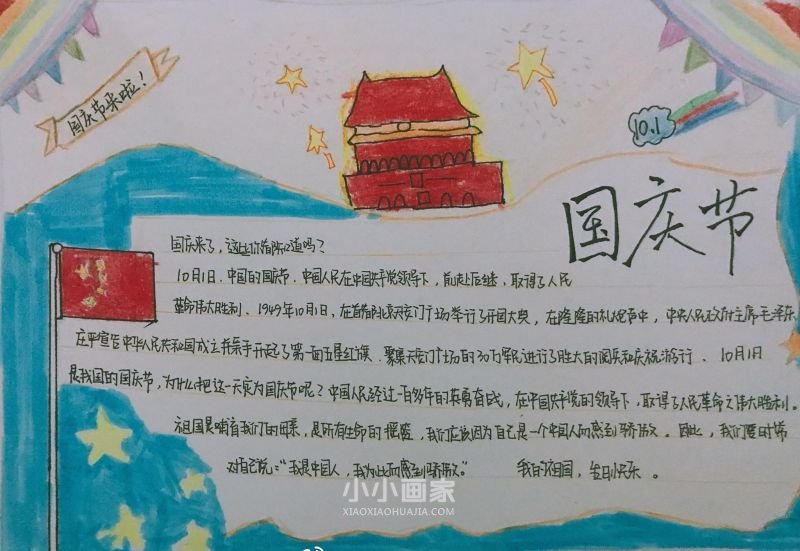 国庆节来啦！
10.1
国庆节
国庆来了，这些你都知道吗？
10月1日，中国的国庆节，中国人民在中国共产党领导下，前赴后继，取得了人民
革命伟大胜利，1949年10月1日，在首都北京天安门广场举行了开国大典，在隆隆的礼炮声中，中央人民政府主席毛泽东
庄严宣告中华人民共和国成立并亲手升起了第一面五星红旗。聚集天安门广场的30万军民进行了盛大的阅兵和庆祝游行。10月1日
是我国的国庆节，为什么把这一天定为国庆节呢？中国人民经过一百多年的英勇奋战，在中国共产党的领导下，取得了人民革命之伟大胜利。
祖国是哺育我们的母亲，是所有生命的摇篮，我们应该因为自己是一个中国人而感到骄傲。因此，我们要时常
对自己说："我是中国人，我为此而感到骄傲。" 我的祖国，生日快乐。
小小画家
XIAOXIAOHUAJIA.COM